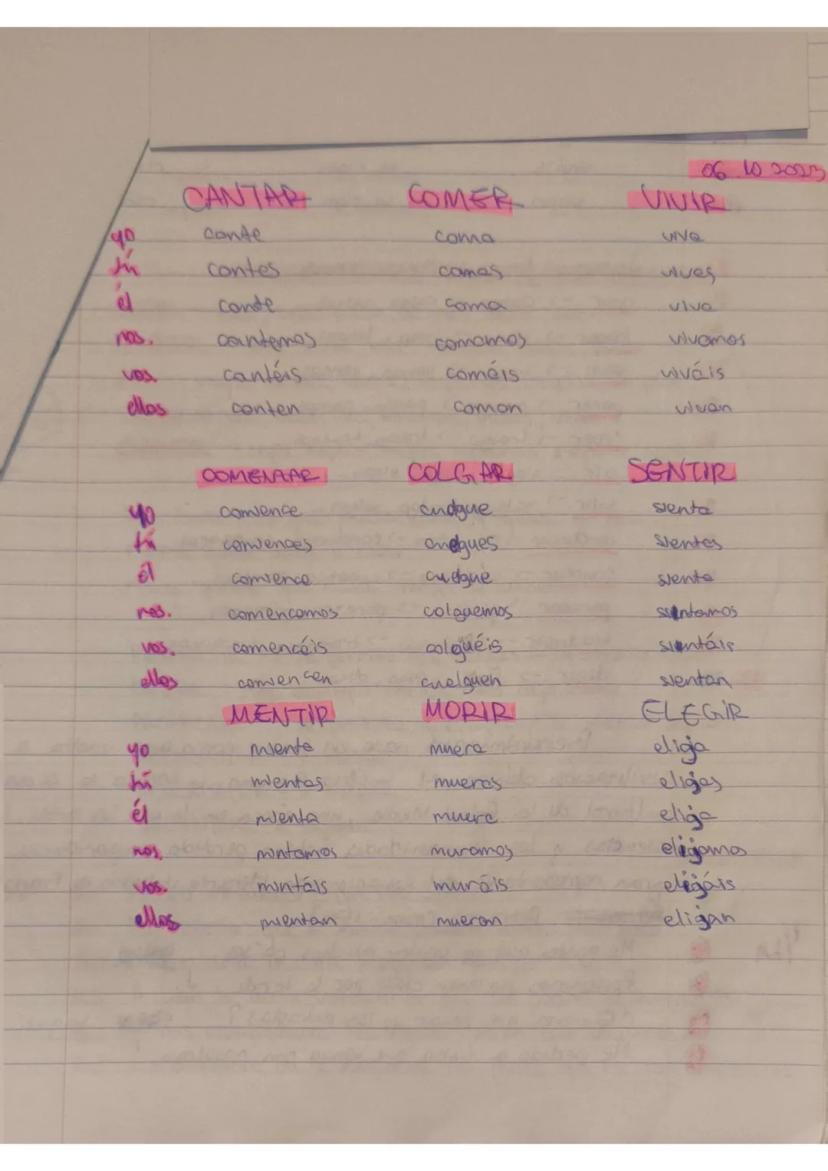 06 10 2023
CANTAR COMER VIVIR
yo cante coma viva
tú cantes comas vivas
él cante coma viva
nos. cantemos comamos vivamos
vos. cantéis comáis viváis
ellos canten coman vivan
COMENZAR COLGAR SENTIR
yo comience cuelgue sienta
tú comiences cuelgues sientas
él comience cuelgue sienta
nos. comencemos colguemos sintamos
vos. comencéis colguéis sintáis
ellos comiencen cuelguen sientan
MENTIR MORIR ELEGIR
yo mienta muera elija
tú mientas mueras eligas
él mienta muera eliga
nos. mintamos muramos eligamos
vos. mintáis muráis eligáis
ellos mientan mueran eligan